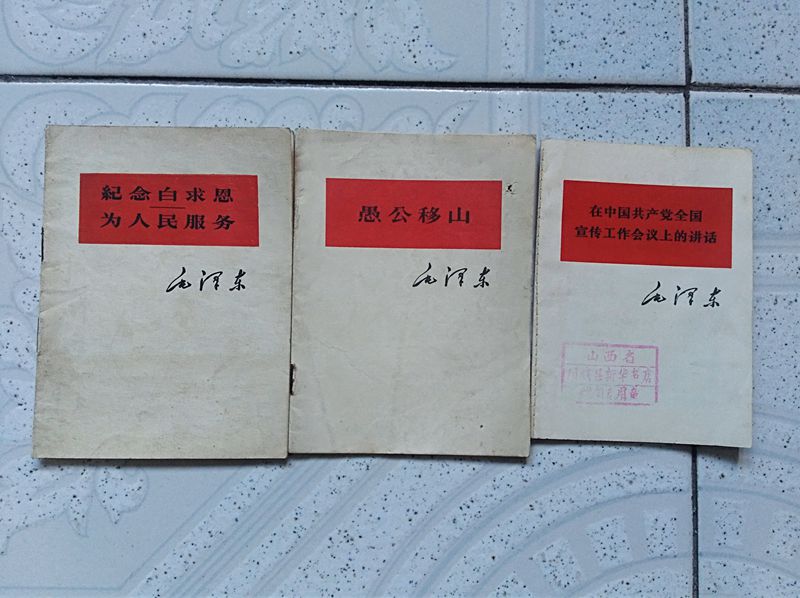 紀念白求恩
为人民服务
毛泽东
愚公移山
毛泽东
在中国共产党全国
宣传工作会议上的讲话
毛泽东
山西省
新华书店